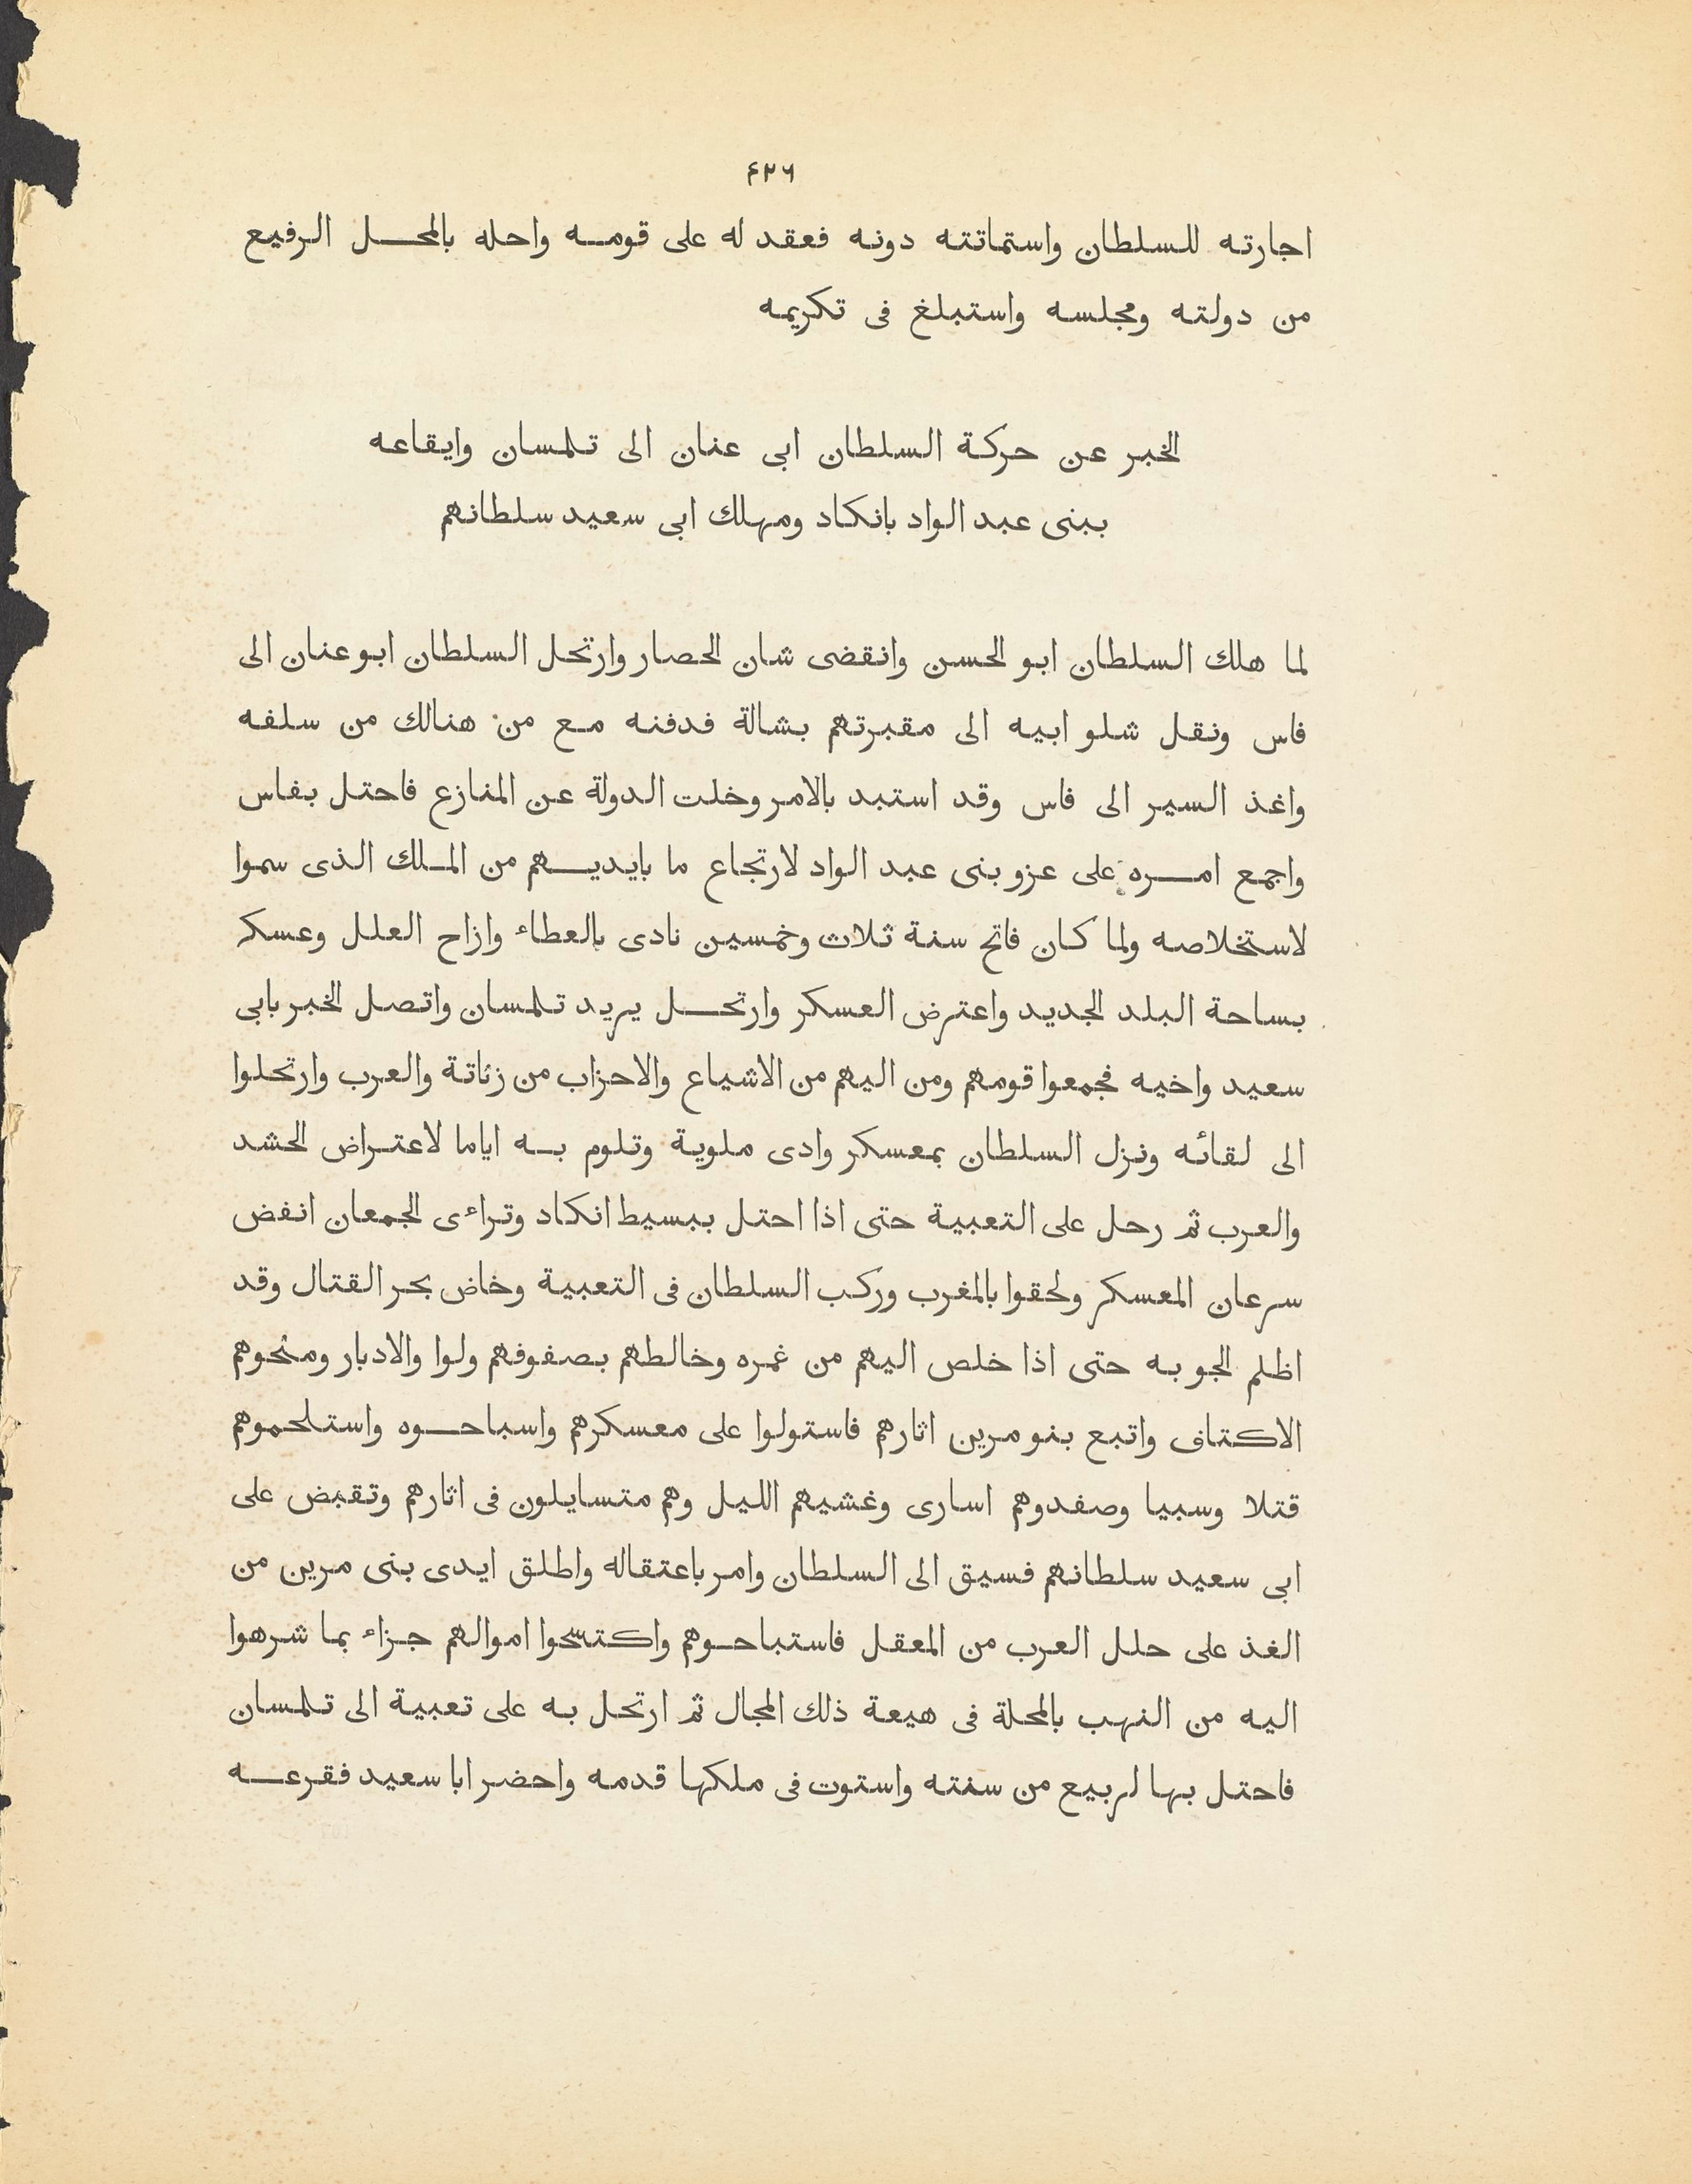 ٤٢٦
اجارته للسلطان واستماتته دونه فعقد له على قومه واحله بالمحل الرفيع
من دولته ومجلسه واستبلغ فى تكريمه
الخبر عن حركة السلطان ابى عنان الى تلمسان وايقاعه
ببنى عبد الواد بانكاد ومهلك ابى سعيد سلطانهم
لما هلك السلطان ابو الحسن وانقضى شان الحصار وارتحل السلطان ابو عنان الى
فاس ونقل شلو ابيه الى مقبرتهم بشالة فدفنه مع من هنالك من سلفه
واغذ السير الى فاس وقد استبد بالامر وخلت الدولة عن المنازع فاحتل بفاس
واجمع امره على عزو بنى عبد الواد لارتجاع ما بايديهم من الملك الذى سموا
لاستخلاصه ولما كان فاتح سنة ثلاث وخمسين نادى بالعطاء وازاح العلل وعسكر
بساحة البلد الجديد واعترض العسكر وارتحل يريد تلمسان واتصل الخبر بابى
سعيد واخيه فجمعوا قومهم ومن اليهم من الاشياع والاحزاب من زناتة والعرب وارتحلوا
الى لقائه ونزل السلطان بمعسكر وادى ملوية وتلوم به اياما لاعتراض الحشد
والعرب ثم رحل على التعبية حتى اذا احتل ببسيط انكاد وتراءى الجمعان انفض
سرعان المعسكر ولحقوا بالمغرب وركب السلطان فى التعبية وخاض بحر القتال وقد
اظلم الجو به حتى اذا خلص اليهم من غمره وخالطهم بصفوفهم ولوا والادبار ومنحوهم
الاكتاف واتبع بنو مرين اثارهم فاستولوا على معسكرهم واسباحوه واستلحموهم
قتلا وسبيا وصفدوهم اسارى وغشيهم الليل وهم متسايلون فى اثارهم وتقبض على
ابى سعيد سلطانهم فسيق الى السلطان وامر باعتقاله واطلق ايدى بنى مرين من
الغذ على حلل العرب من المعقل فاستباحوهم واكتسحوا اموالهم جزاء بما شرهوا
اليه من النهب بالمحلة فى هيعة ذلك المجال ثم ارتحل به على تعبية الى تلمسان
فاحتل بها لربيع من سنته واستوت فى ملكها قدمه واحضر ابا سعيد فقرعه